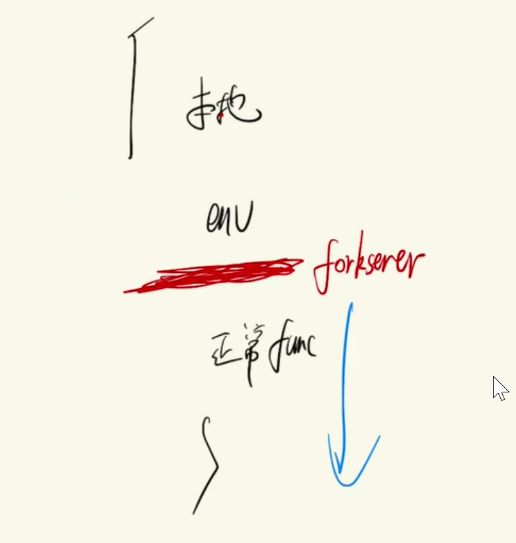 本地
env
forkserer
正常func